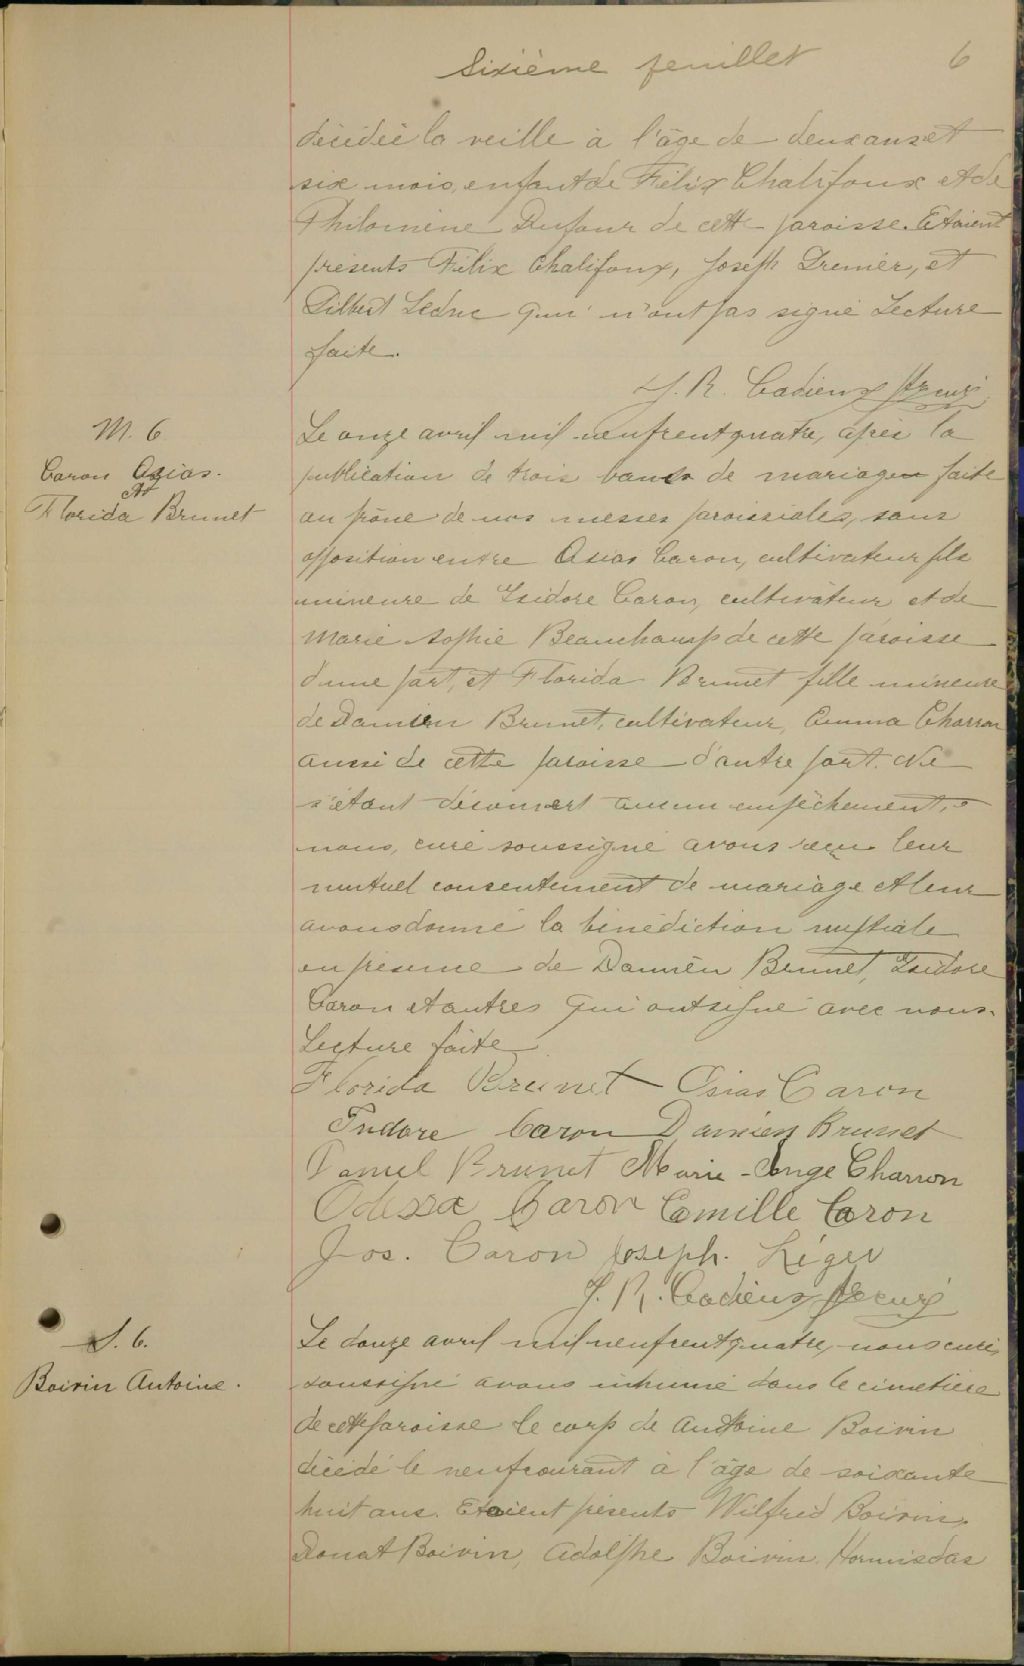 Sixième feuillet 6
décédée la veille à l'âge de deux ans et
six mois, enfant de Félix Chalifoux et de
Philomène Dufour de cette paroisse. Etaient
présents Félix Chalifoux, Joseph Grenier, et
Gilbert Leduc qui n'ont pas signé Lecture
faite.
J. R. Cadieux ptre curé
M. 6
Caron Osias.
et
Florida Brunet
Le onze avril mil neufcentquatre, après la
publication de trois bancs de mariage faite
au prône de nos messes paroissiales, sans
opposition entre Osias Caron, cultivateur fils
mineure de Isidore Caron, cultivateur et de
Marie Sophie Beauchamp de cette paroisse
d'une part, et Florida Brunet fille mineure
de Damien Brunet, cultivateur, Emma Charron
aussi de cette paroisse d'autre part. Ne
s'étant découvert aucun empêchement,
nous, curé soussigné avons reçu leur
mutuel consentement de mariage et leur
avons donné la bénédiction nuptiale
en présence de Damien Brunet, Isidore
Caron et autres qui ont signé avec nous.
Lecture faite
Florida Brunet Osias Caron
Isidore Caron Damien Brunet
Daniel Brunet Marie-Ange Charron
Odessa Caron Camille Caron
Jos. Caron Joseph. Léger
J. R. Cadieux ptre curé
S. 6.
Boivin Antoine.
Le douze avril mil neufcentquatre, nous curé
soussigné avons inhumé dans le cimetière
de cette paroisse le corp de Antoine Boivin
décédé le neuf courant à l'âge de soixante
huit ans. Etaient présents Wilfred Boivin,
Donat Boivin, Adolphe Boivin, Hormisdas